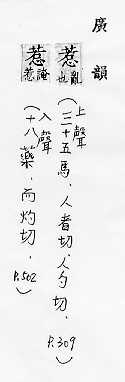 廣韻
惹 亂也
(上聲 三十五馬，人者切，人勺切，P.309)
惹 惹諵
(入聲 十八藥，而灼切，P.502)